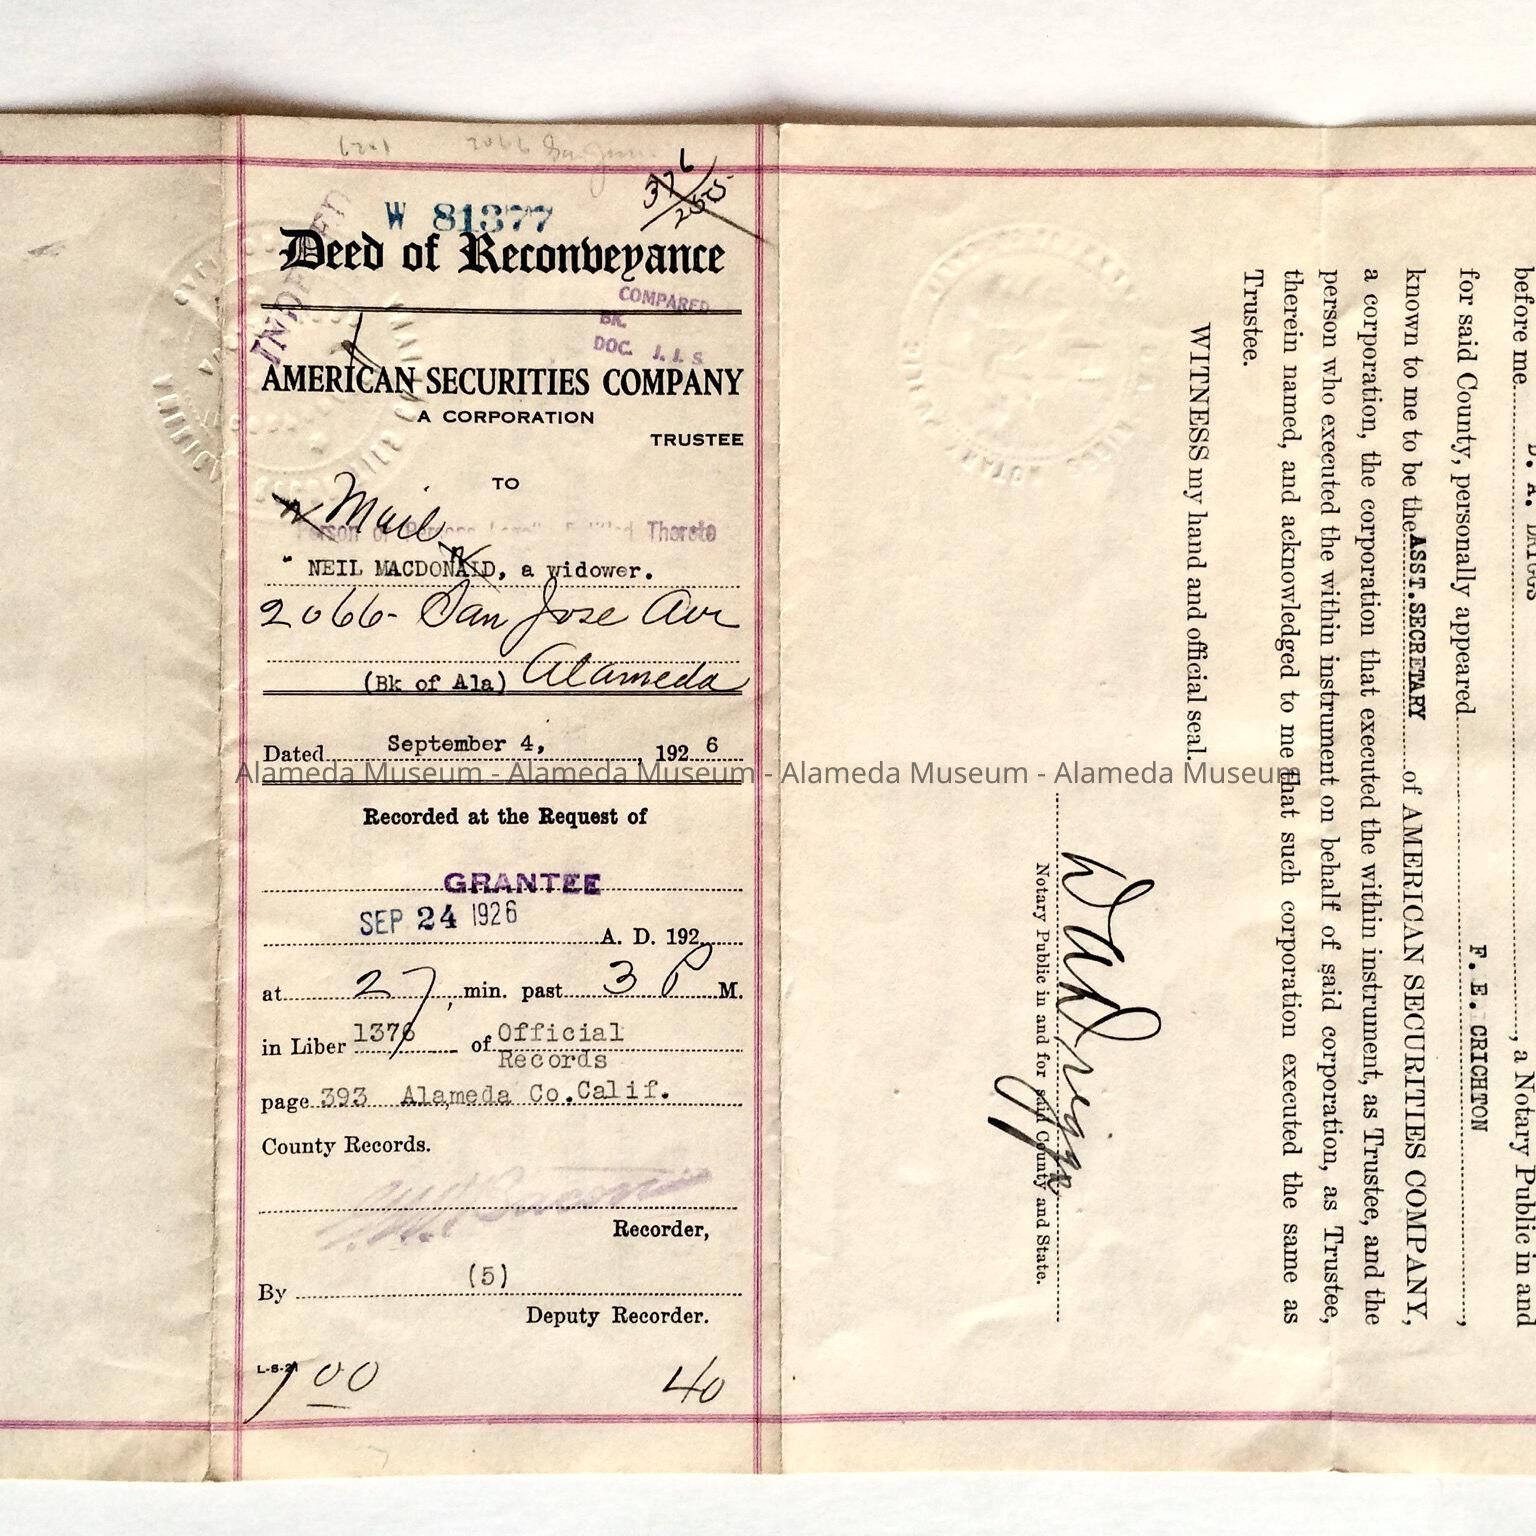 2066 San Jose
376
2505
W 81377
Deed of Reconveyance
INDEXED
COMPARED
BK.
DOC. J. J. S.
AMERICAN SECURITIES COMPANY
A CORPORATION
TRUSTEE
TO
Mail
Person or Persons Legally Entitled Thereto
NEIL MACDONALD, a widower.
2066- San Jose Ave
(Bk of Ala) Alameda
Dated September 4, 192 6
Alameda Museum - Alameda Museum - Alameda Museum - Alameda Museum
Recorded at the Request of
GRANTEE
SEP 24 1926
A. D. 192
at 27 min. past 3 P M.
in Liber 1376 of Official
Records
page 393 Alameda Co.Calif.
County Records.
Recorder,
By (5)
Deputy Recorder.
L-6-21
1 00 40
before me D. A. BRIGGS, a Notary Public in and
for said County, personally appeared F. E. CRICHTON,
known to me to be the ASST.SECRETARY of AMERICAN SECURITIES COMPANY,
a corporation, the corporation that executed the within instrument, as Trustee, and the
person who executed the within instrument on behalf of said corporation, as Trustee,
therein named, and acknowledged to me that such corporation executed the same as
Trustee.
WITNESS my hand and official seal.
Notary Public in and for said County and State.